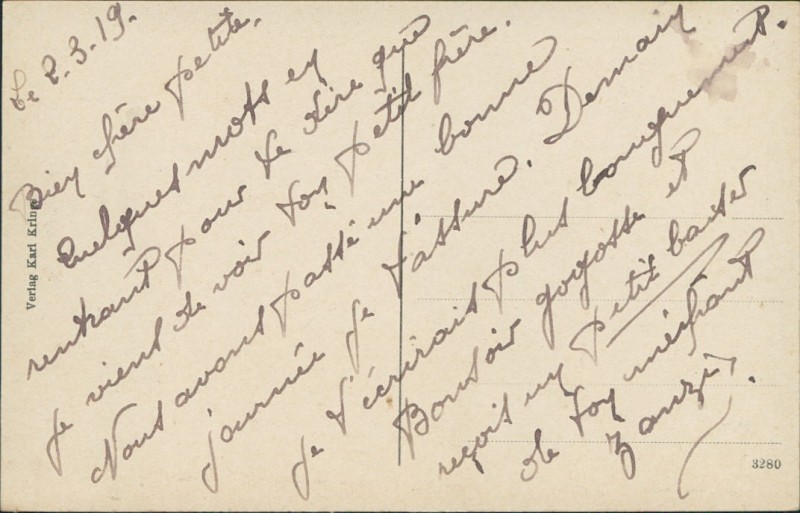 Le 2.3.19.
Bien chère petite.
Quelques mots en
rentrant pour te dire que
je viens de voir ton petit frère.
Nous avons passé une bonne
journée je t'assure. Demain
je t'écrirais plus longuement.
Bonsoir gogosse et
reçoit un petit baiser
de ton méchant
Zanzin.
Verlag Karl Kring
3280